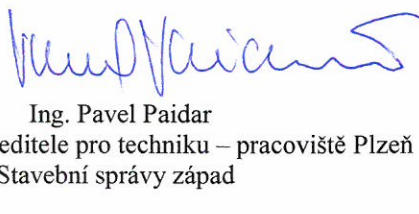 Ing. Pavel Paidar
editele pro techniku – pracoviště Plzeň
Stavební správy západ